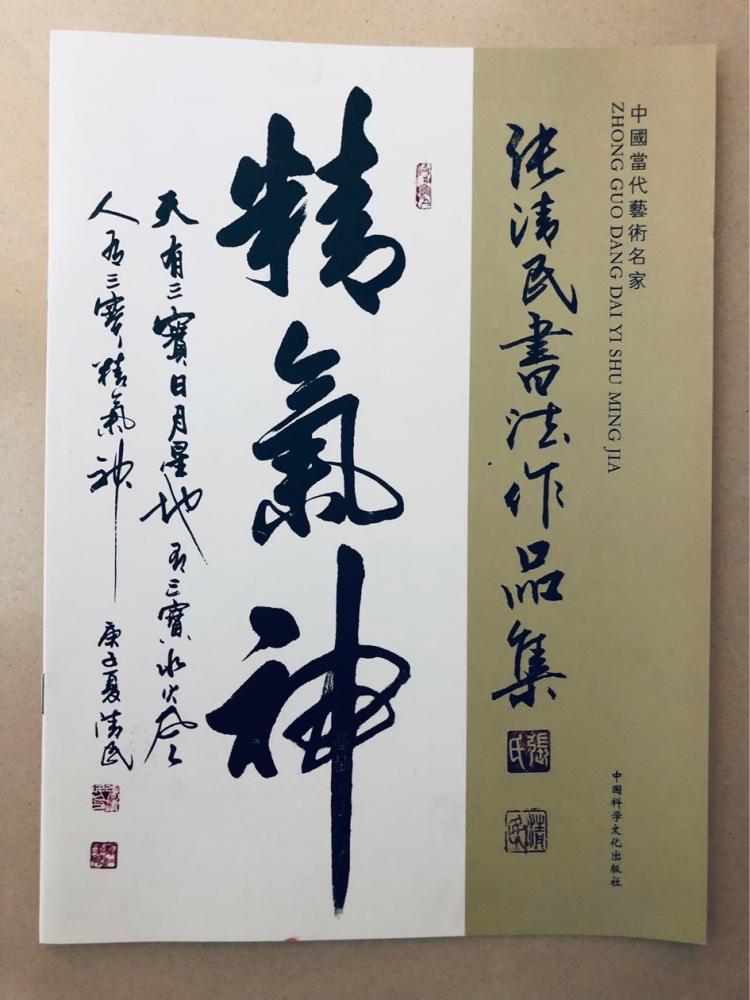 中國當代藝術名家
ZHONG GUO DANG DAI YI SHU MING JIA
张清民書法作品集
張氏
清民
中国科学文化出版社
精氣神
天有三寶日月星地有三寶水火风
人有三寶精氣神
庚子夏清民